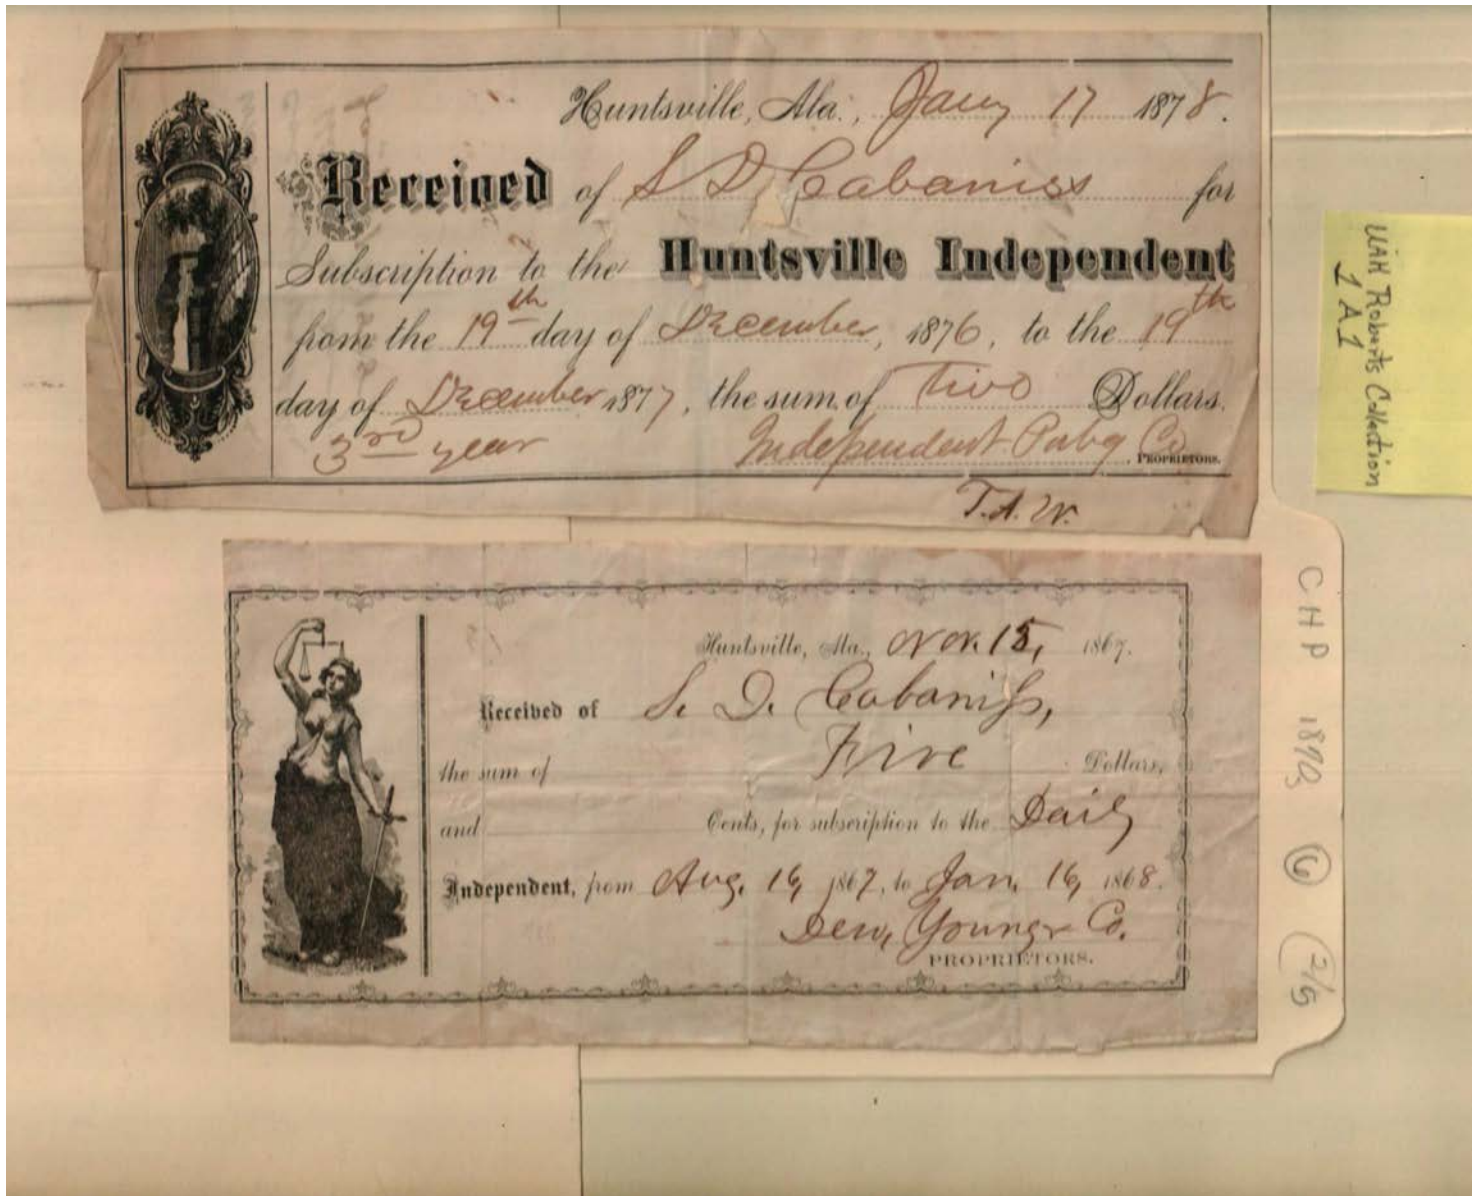 Huntsville, Ala., Jany 17 1878.
Received of S D Cabaniss for
Subscription to the Huntsville Independent
from the 19th day of December, 1876, to the 19th
day of December 1877, the sum of Two Dollars.
3rd year Independent Pubg Co. PROPRIETORS.
T.A.W.
Huntsville, Ala., Nov. 15, 1867.
Received of S. D. Cabaniss,
the sum of Five Dollars,
and Cents, for subscription to the Daily
Independent, from Aug. 16, 1867, to Jan. 16, 1868.
Dew, Young & Co.
PROPRIETORS.
UAH Roberts Collection
1 A 1
CHP 1890s 6 2/5